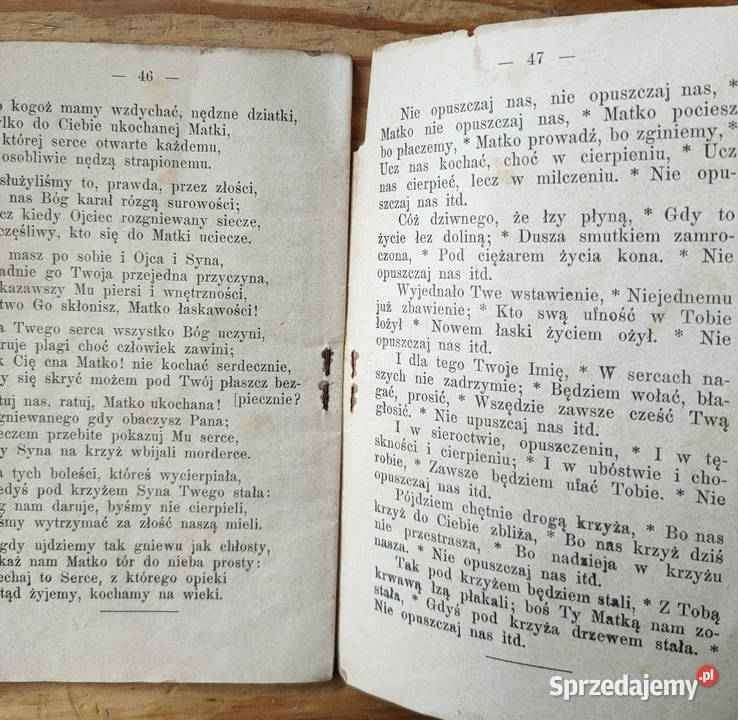 — 46 —
kogoż mamy wzdychać, nędzne dziatki,
ylko do Ciebie ukochanej Matki,
której serce otwarte każdemu,
osobliwie nędzą strapionemu.
służyliśmy to, prawda, przez złości,
nas Bóg karał rózgą surowości;
cz kiedy Ojciec rozgniewany siecze,
częśliwy, kto się do Matki uciecze.
masz po sobie i Ojca i Syna,
adnie go Twoja przejedna przyczyna,
kazawszy Mu piersi i wnętrzności,
two Go skłonisz, Matko łaskawości!
a Twego serca wszystko Bóg uczyni,
ruje plagi choć człowiek zawini;
k Cię cna Matko! nie kochać serdecznie,
y się skryć możem pod Twój płaszcz bez-
tuj nas, ratuj, Matko ukochana! [piecznie?
gniewanego gdy obaczysz Pana;
eczem przebite pokazuj Mu serce,
y Syna na krzyż wbijali morderce.
a tych boleści, któreś wycierpiała,
edyś pod krzyżem Syna Twego stała:
g nam daruje, byśmy nie cierpieli,
śmy wytrzymać za złość naszą mieli.
gdy ujdziemy tak gniewu jak chłosty,
każ nam Matko tór do nieba prosty:
echaj to Serce, z którego opieki
tąd żyjemy, kochamy na wieki.
— 47 —
Nie opuszczaj nas, nie opuszczaj nas, *
Matko nie opuszczaj nas, * Matko pociesz
bo płaczemy, * Matko prowadź, bo zginiemy, *
Ucz nas kochać, choć w cierpieniu, * Ucz
nas cierpieć, lecz w milczeniu. * Nie opu-
szczaj nas itd.
Cóż dziwnego, że łzy płyną, * Gdy to
życie łez doliną; * Dusza smutkiem zamro-
czona, * Pod ciężarem życia kona. * Nie
opuszczaj nas itd.
Wyjednało Twe wstawienie, * Niejednemu
już zbawienie; * Kto swą ufność w Tobie
łożył * Nowem łaski życiem ożył. * Nie
opuszczaj nas itd.
I dla tego Twoje Imię, * W sercach na-
szych nie zadrzymie; * Będziem wołać, bła-
gać, prosić, * Wszędzie zawsze cześć Twą
głosić. * Nie opuszczaj nas itd.
I w sieroctwie, opuszczeniu, * I w tę-
skności i cierpieniu; * I w ubóstwie i cho-
robie, * Zawsze będziem ufać Tobie. * Nie
opuszczaj nas itd.
Pójdziem chętnie drogą krzyża, * Bo nas
krzyż do Ciebie zbliża, * Bo nas krzyż dziś
nie przestrasza, * Bo nadzieja w krzyżu
nasza. * Nie opuszczaj nas itd.
Tak pod krzyżem będziem stali, * Z Tobą
krwawą łzą płakali; boś Ty Matką nam zo-
stała, * Gdyś pod krzyża drzewem stała. *
Nie opuszczaj nas itd.
Sprzedajemy.pl